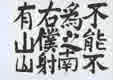 不能不
為山南
右僕射
有山山